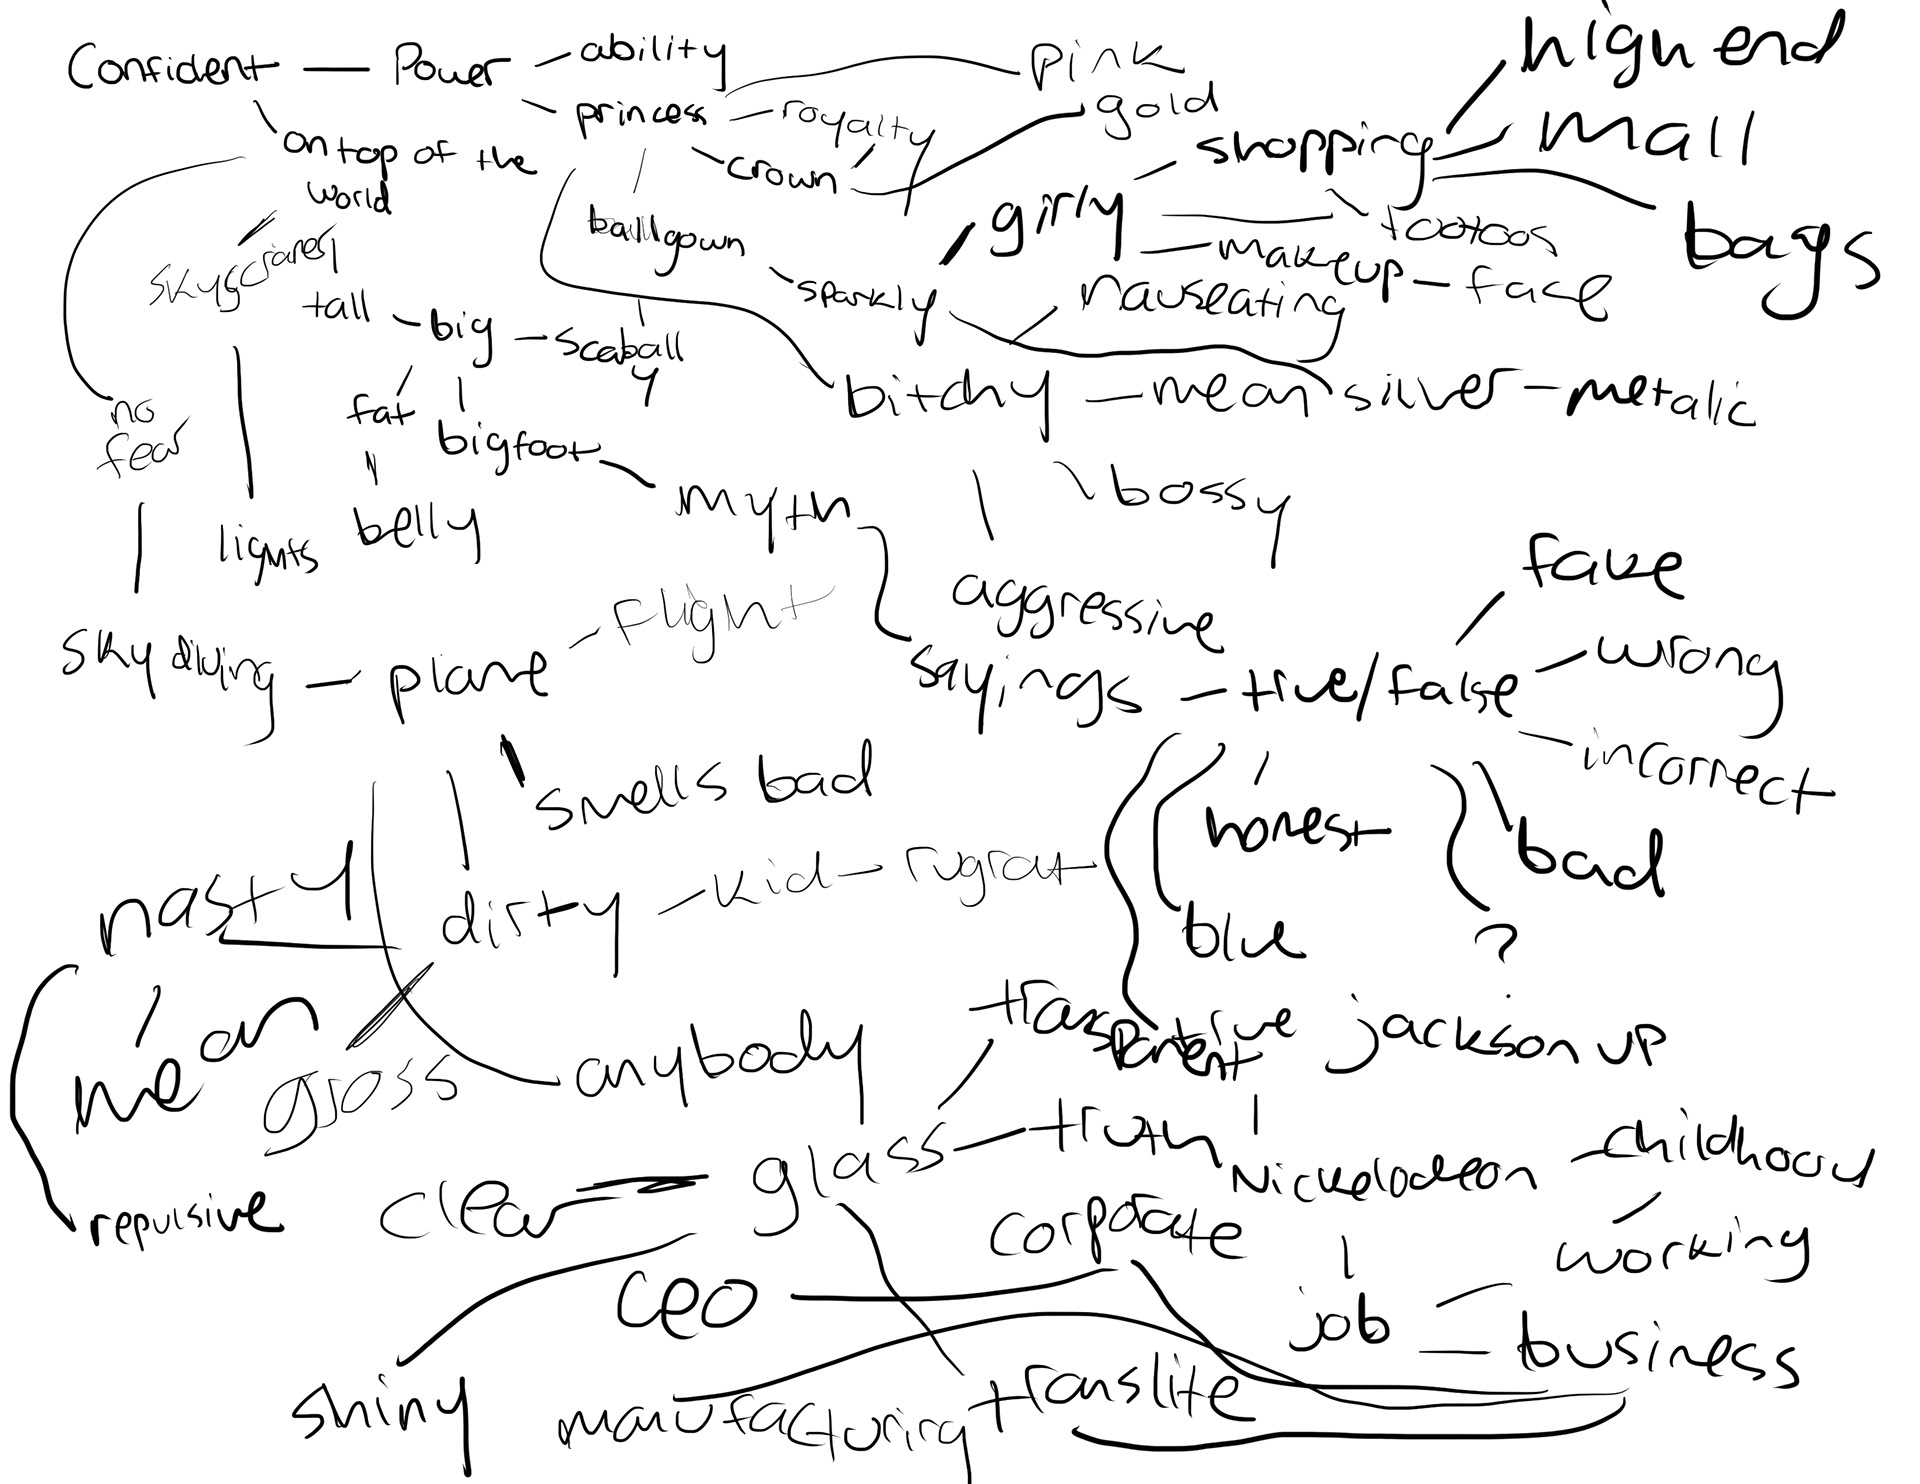 Confident
Power
ability
princess
royalty
crown
pink
gold
high end
mall
shopping
bags
on top of the
world
ballgown
girly
tootoos
makeup
face
nauseating
sparkly
tall
big
bitchy
mean
silver
metalic
no
fear
fat
bigfoot
lights
belly
myth
bossy
aggressive
flight
sky diving
plane
sayings
true/false
fake
wrong
incorrect
smells bad
honest
bad
nasty
dirty
kid
rugrat
blue
?
mean
gross
anybody
transparent
true jackson vp
glass
truth
Nickelodeon
childhood
repulsive
clear
corporate
working
CEO
job
business
shiny
manufacturing
translite